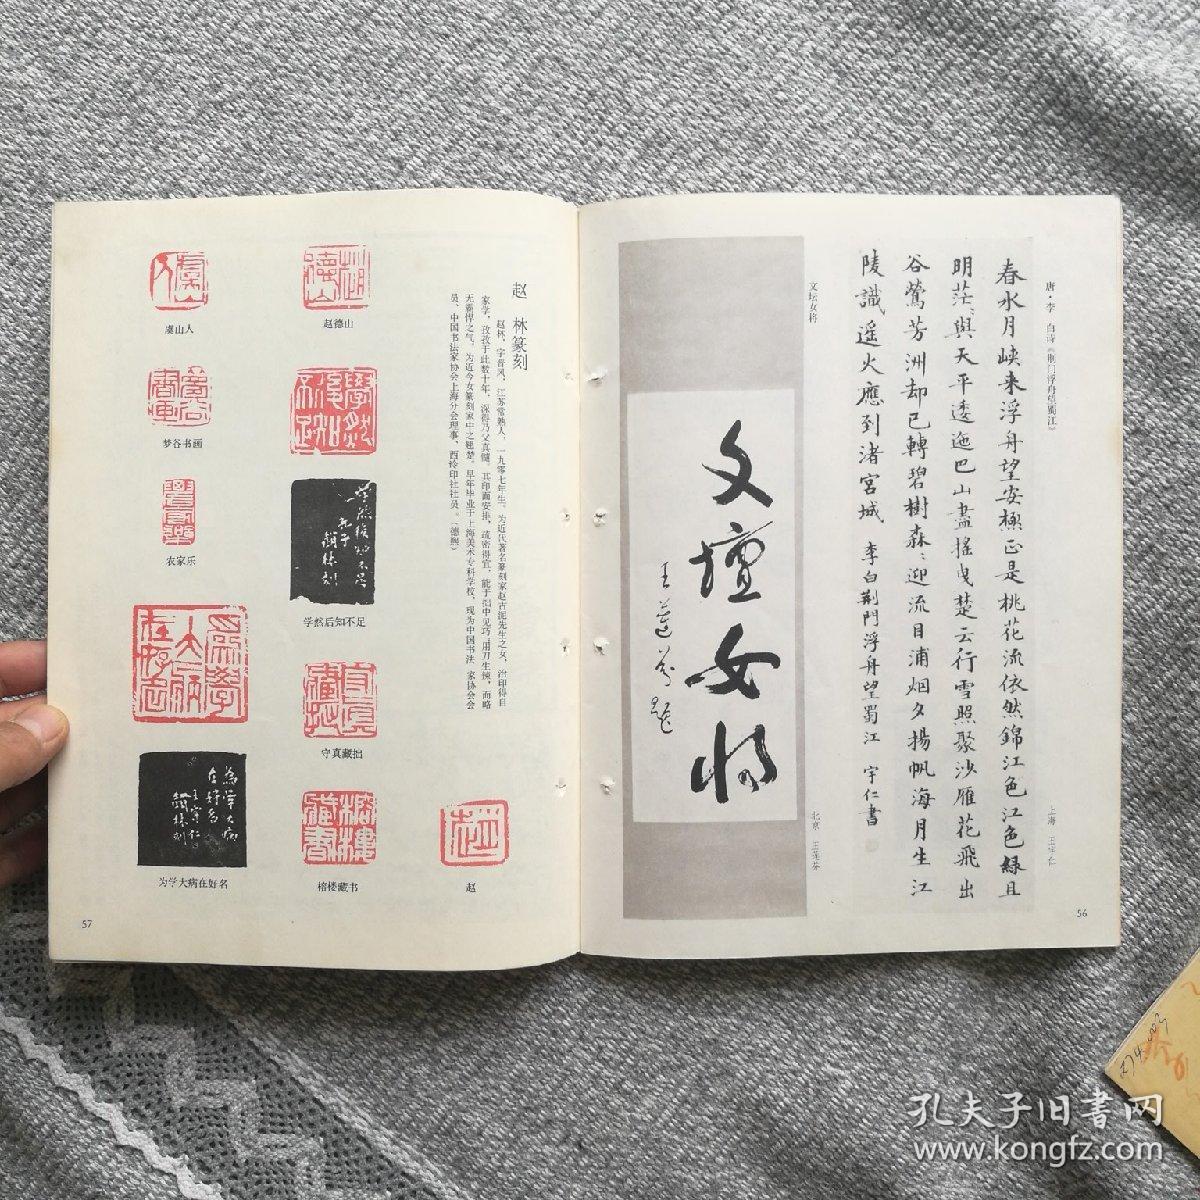 唐·李 白诗《荆门浮舟望蜀江》
春水月峡来浮舟望安極正是桃花流依然錦江色江色緑且
明茫茫與天平逶迤巴山盡搖曳楚云行雪照聚沙雁花飛出
谷鶯芳洲却已轉碧樹森森迎流目浦烟夕揚帆海月生江
陵識遥火應到渚宫城 李白荆門浮舟望蜀江 宇仁書
文坛女将
文壇女将
王莲芬题
北京 王莲芬
56
赵 林篆刻
赵林,字晋风,江苏常熟人,一九零七年生。为近代著名篆刻家赵古泥先生之女,治印得自
家学,孜孜于此数十年,深得乃父真髓。其印面安排,疏密得宜,能于拙中见巧;用刀生辣,而略
无霸悍之气。为近今女篆刻家中之翘楚。早年毕业于上海美术专科学校,现为中国书法 家协会会
员、中国书法家协会上海分会理事、西泠印社社员。(德熙)
赵德山
学然后知不足
守真藏拙
榕楼藏书
赵
虞山人
梦谷书画
农家乐
为学大病在好名
57
孔夫子旧书网
www.kongfz.com